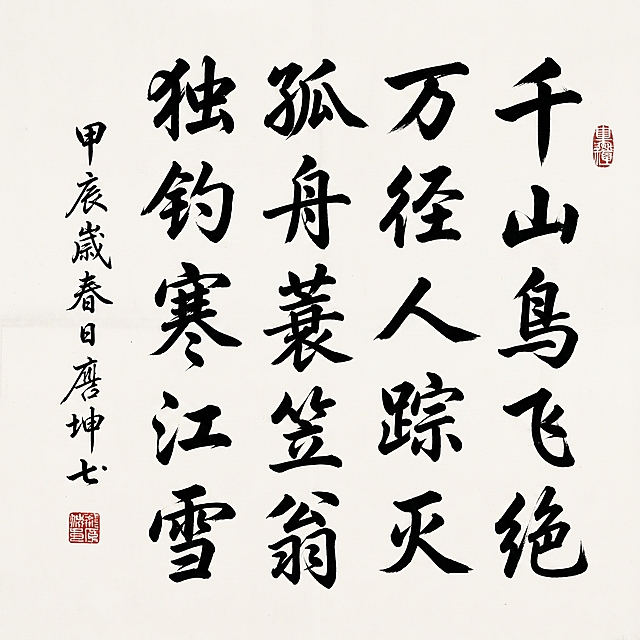 千山鸟飞绝
万径人踪灭
孤舟蓑笠翁
独钓寒江雪
甲辰岁春日磨坤书